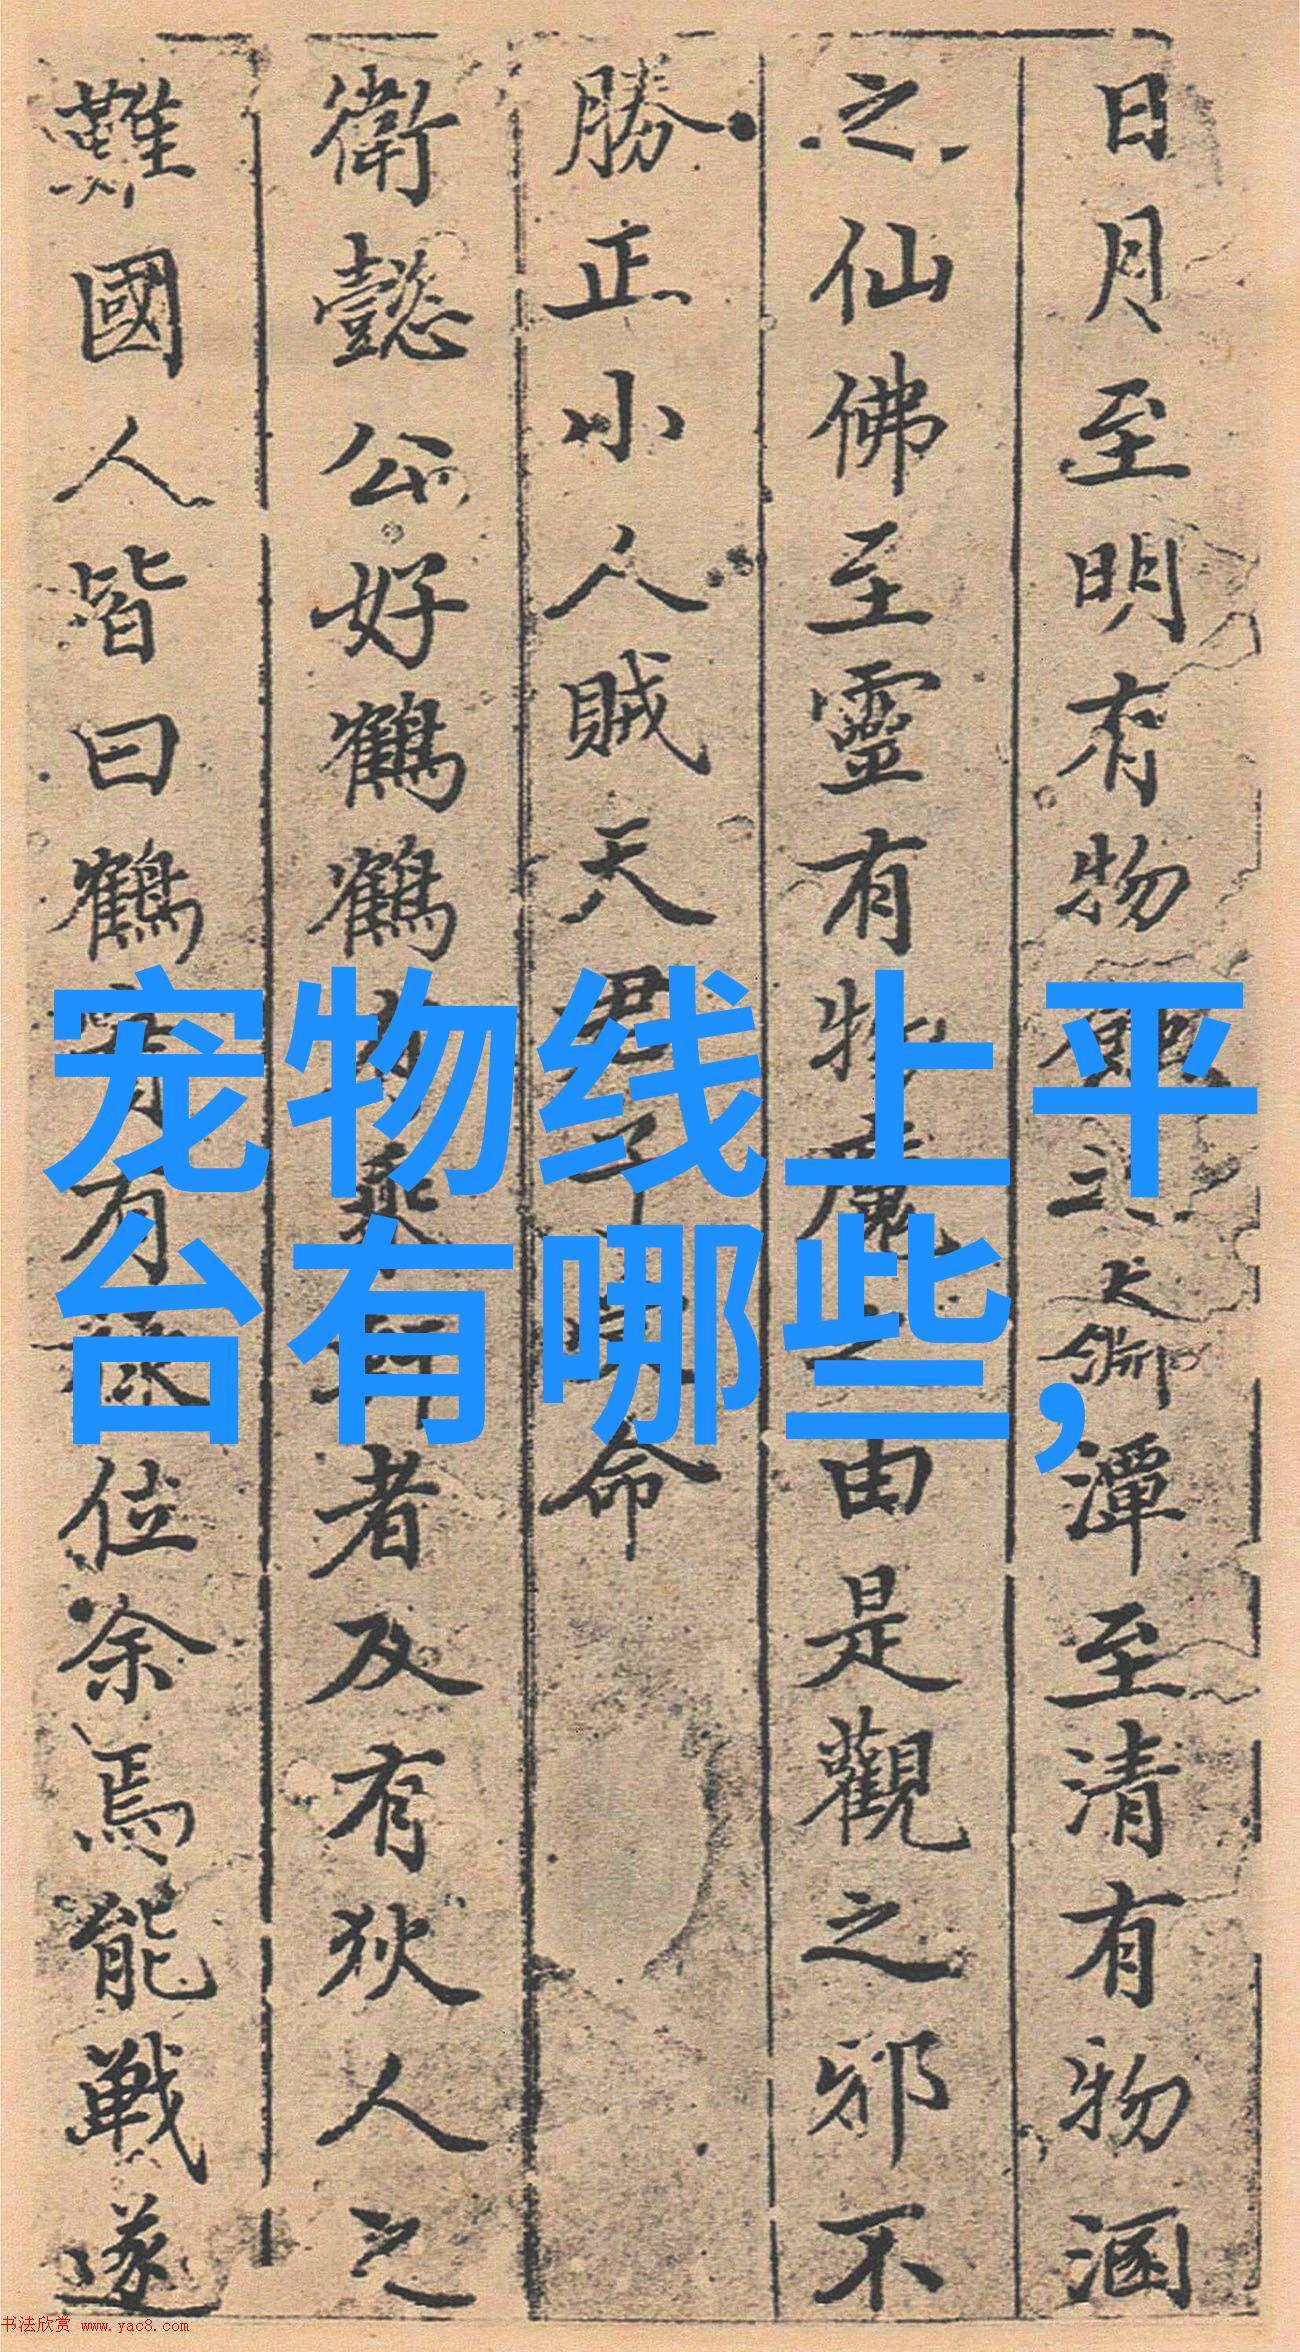 日月至明有物
潭至清有物涵
之仙佛至靈有物魔之由是觀之邪不
勝正小人賊天君子
命
衛懿公好鶴鶴有乘軒者及有狄人之
難國人皆曰鶴實有祿位余焉能戰遂
宠物线上平
台有哪些,
书法欣赏 www.yac8.com